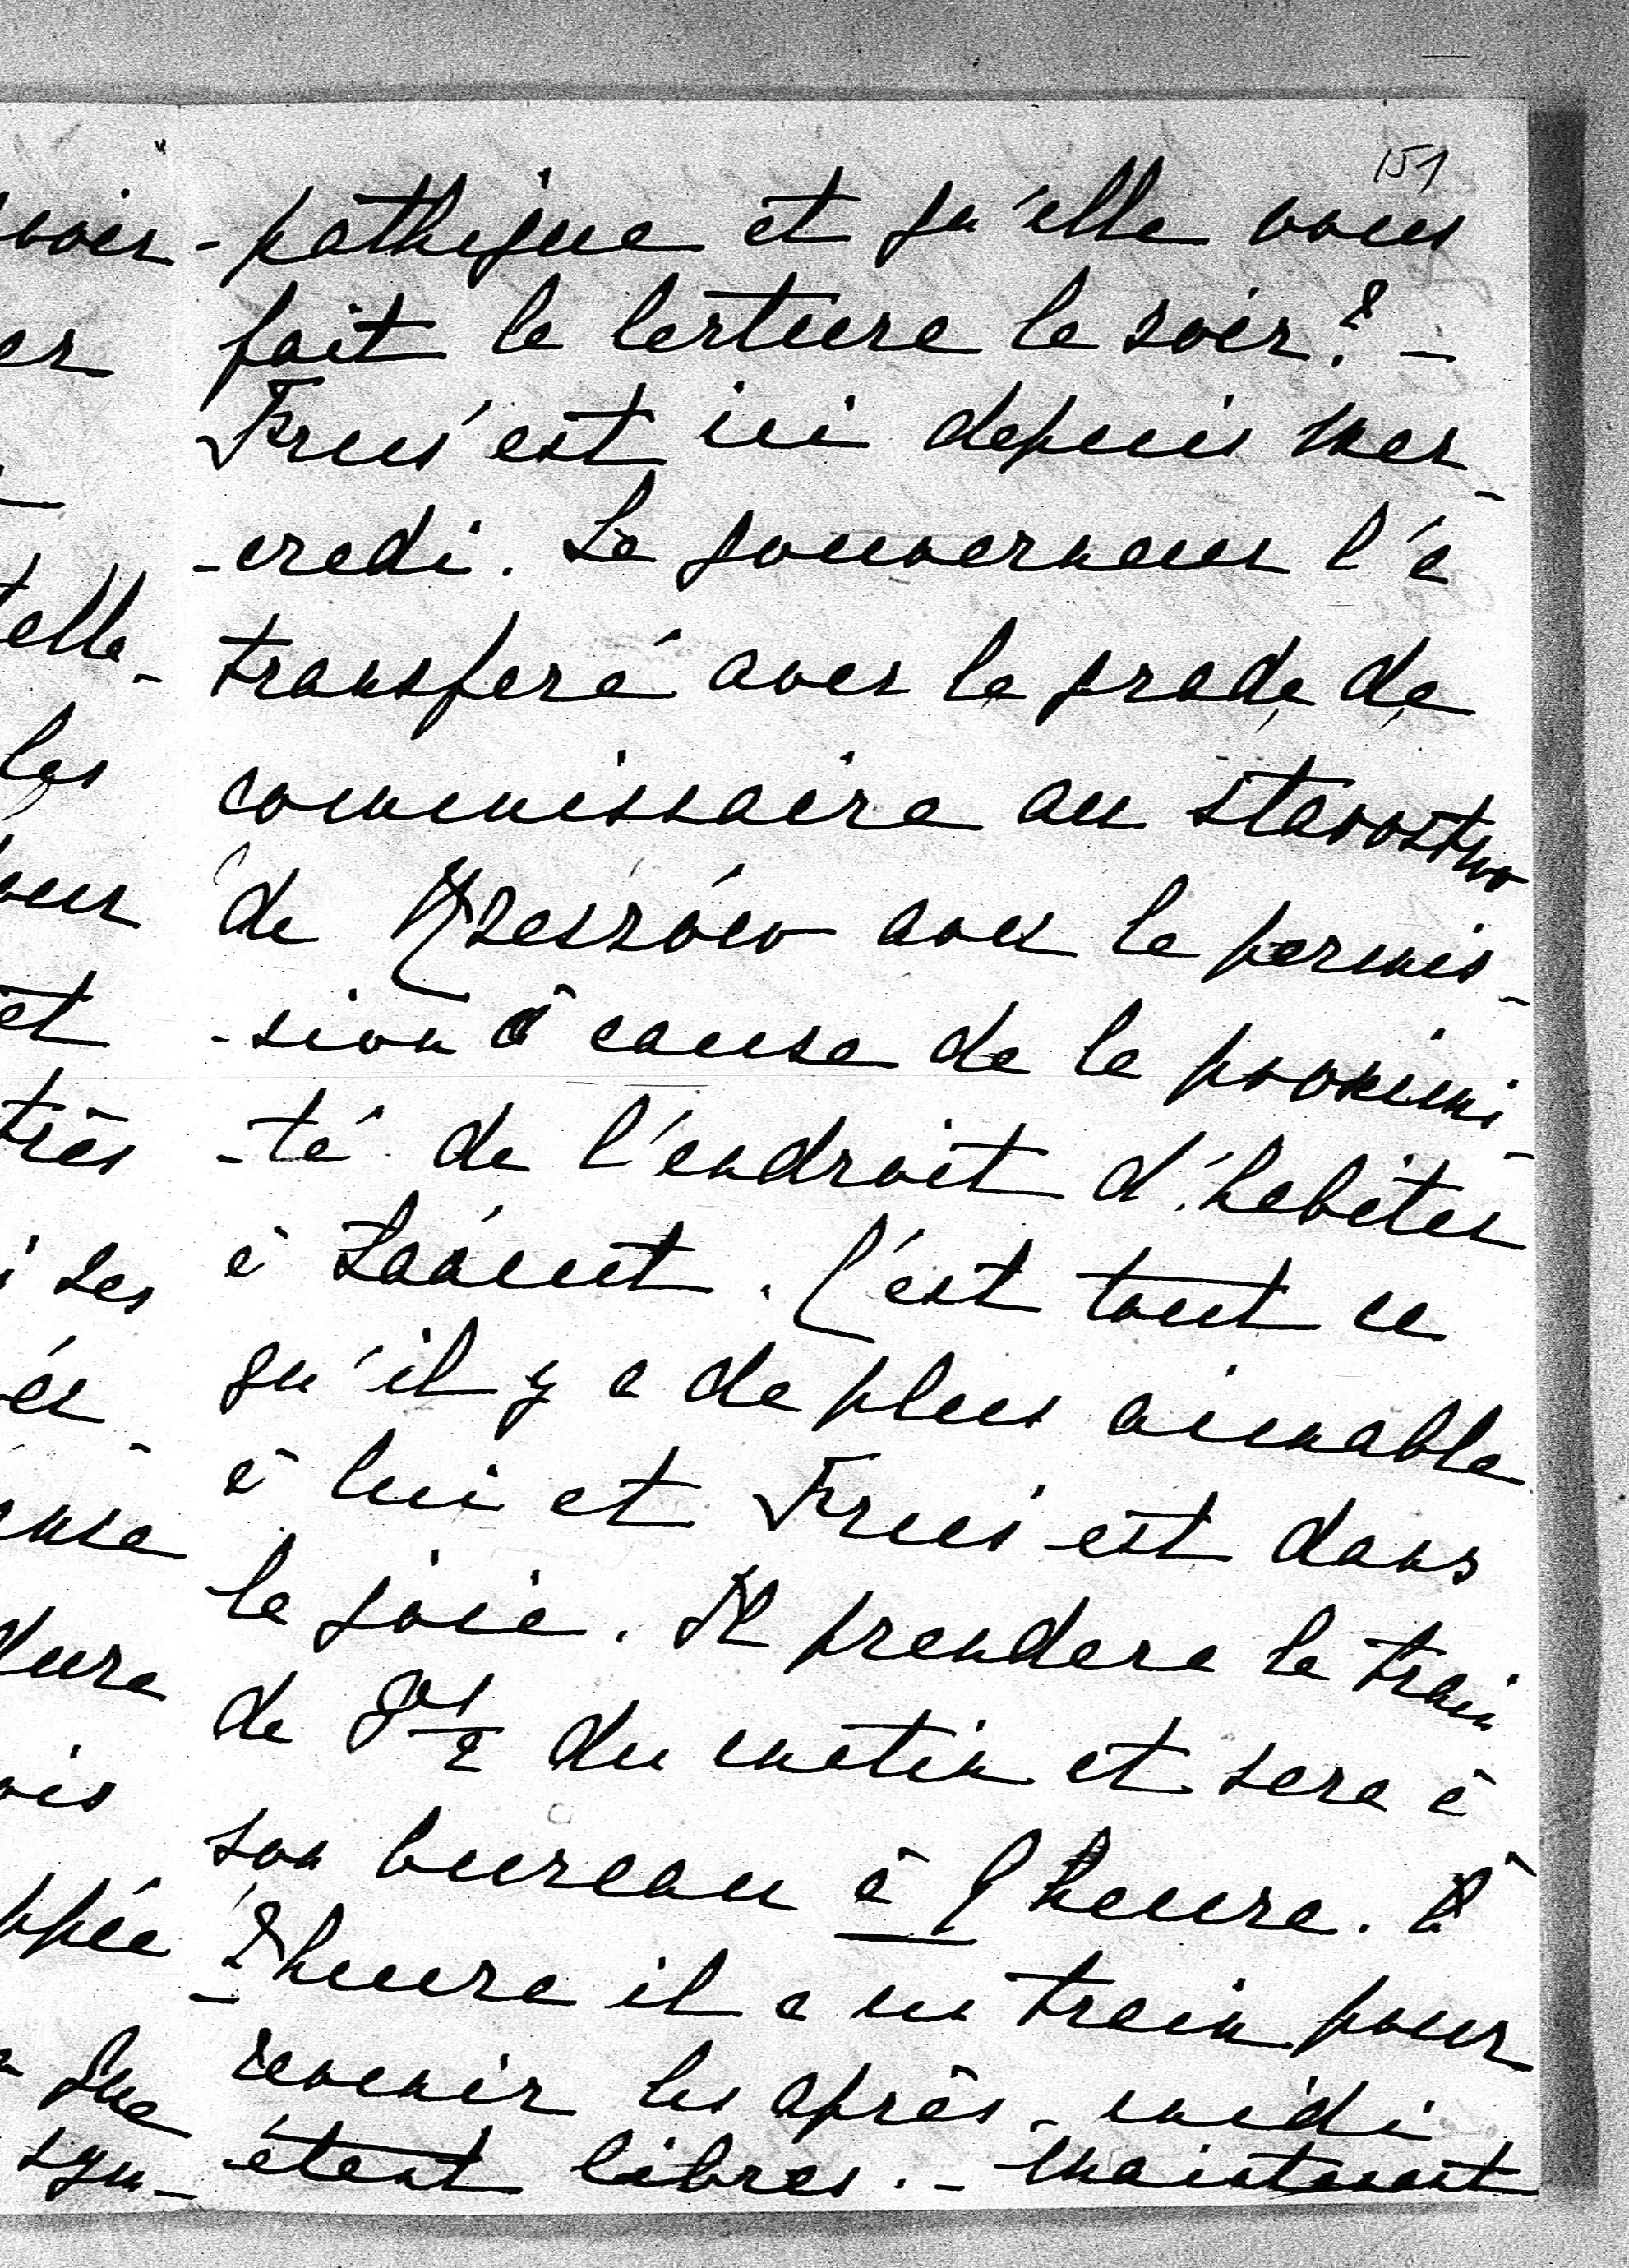 151
-pathique et qu'elle vous
fait la lecture le soir? -
est ici depuis mer-
-credi. Le gouverneur l'a
transferé avec le grade de
commissaire au starostwo
de Rzeszów avec la permis-
-sion à cause de la proximi-
-té de l'endroit d'habiter
à Łańcut. C'est tout ce
qu'il y a de plus aimable
à lui et est dans
la joie. Il prendera le train
de 8 1/2 du matin et sera à
son bureau à 9 heure. à
2 heure il a un train pour
revenir les après-midi
étant libres. - Maintenant
voir
er
telle-
les
et
très
ses
dure
que
sym-